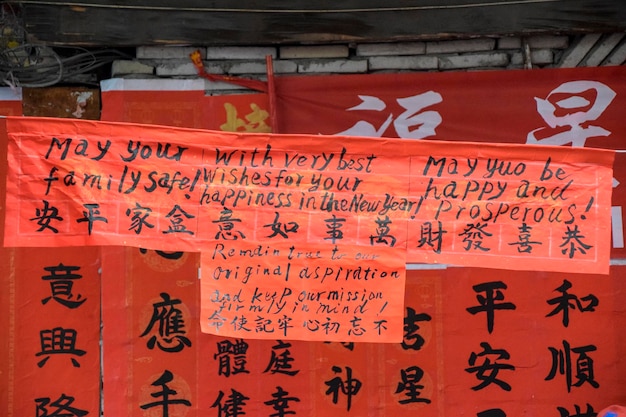 May your
family safe!
with very best
Wishes for your
happiness in the New Year!
May yuo be
happy and
Prosperous!
安平家盒 意如事萬 財發喜恭
Remain true to our
original aspiration
and keep our mission
firmly in mind!
命使記牢心初忘不
福
星
意興隆
應手
體健
庭幸
神
吉星
平安
和順